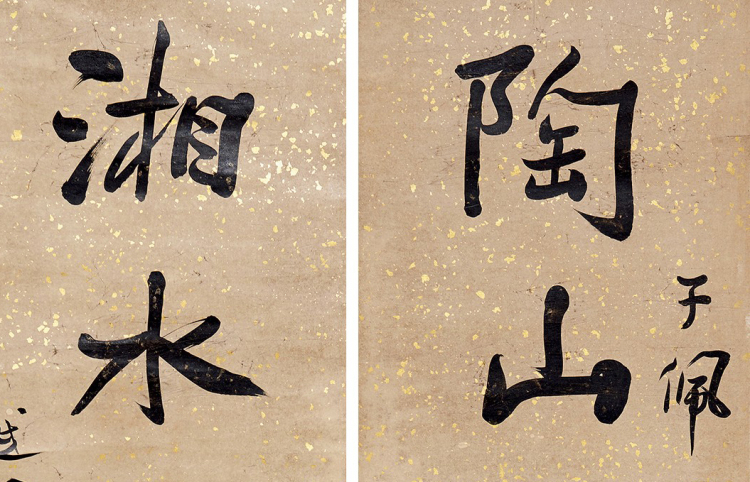 陶山
子佩
湘水